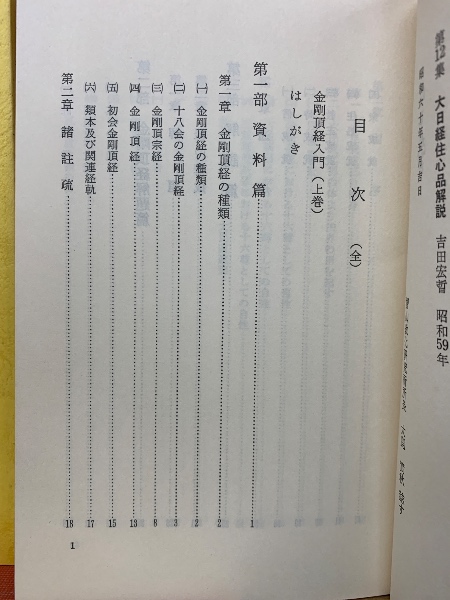 第12集 大日経住心品解説 吉田宏晢 昭和59年
目次（全）
金剛頂経入門（上巻）
はしがき
第一部 資料篇……1
第一章 金剛頂経の種類……2
㈠ 金剛頂経の種類……2
㈡ 十八会の金剛頂経……3
㈢ 金剛頂宗経……8
㈣ 金剛頂経……13
㈤ 初会金剛頂経……15
㈥ 類本及び関連経軌……17
第二章 諸註疏……18
1